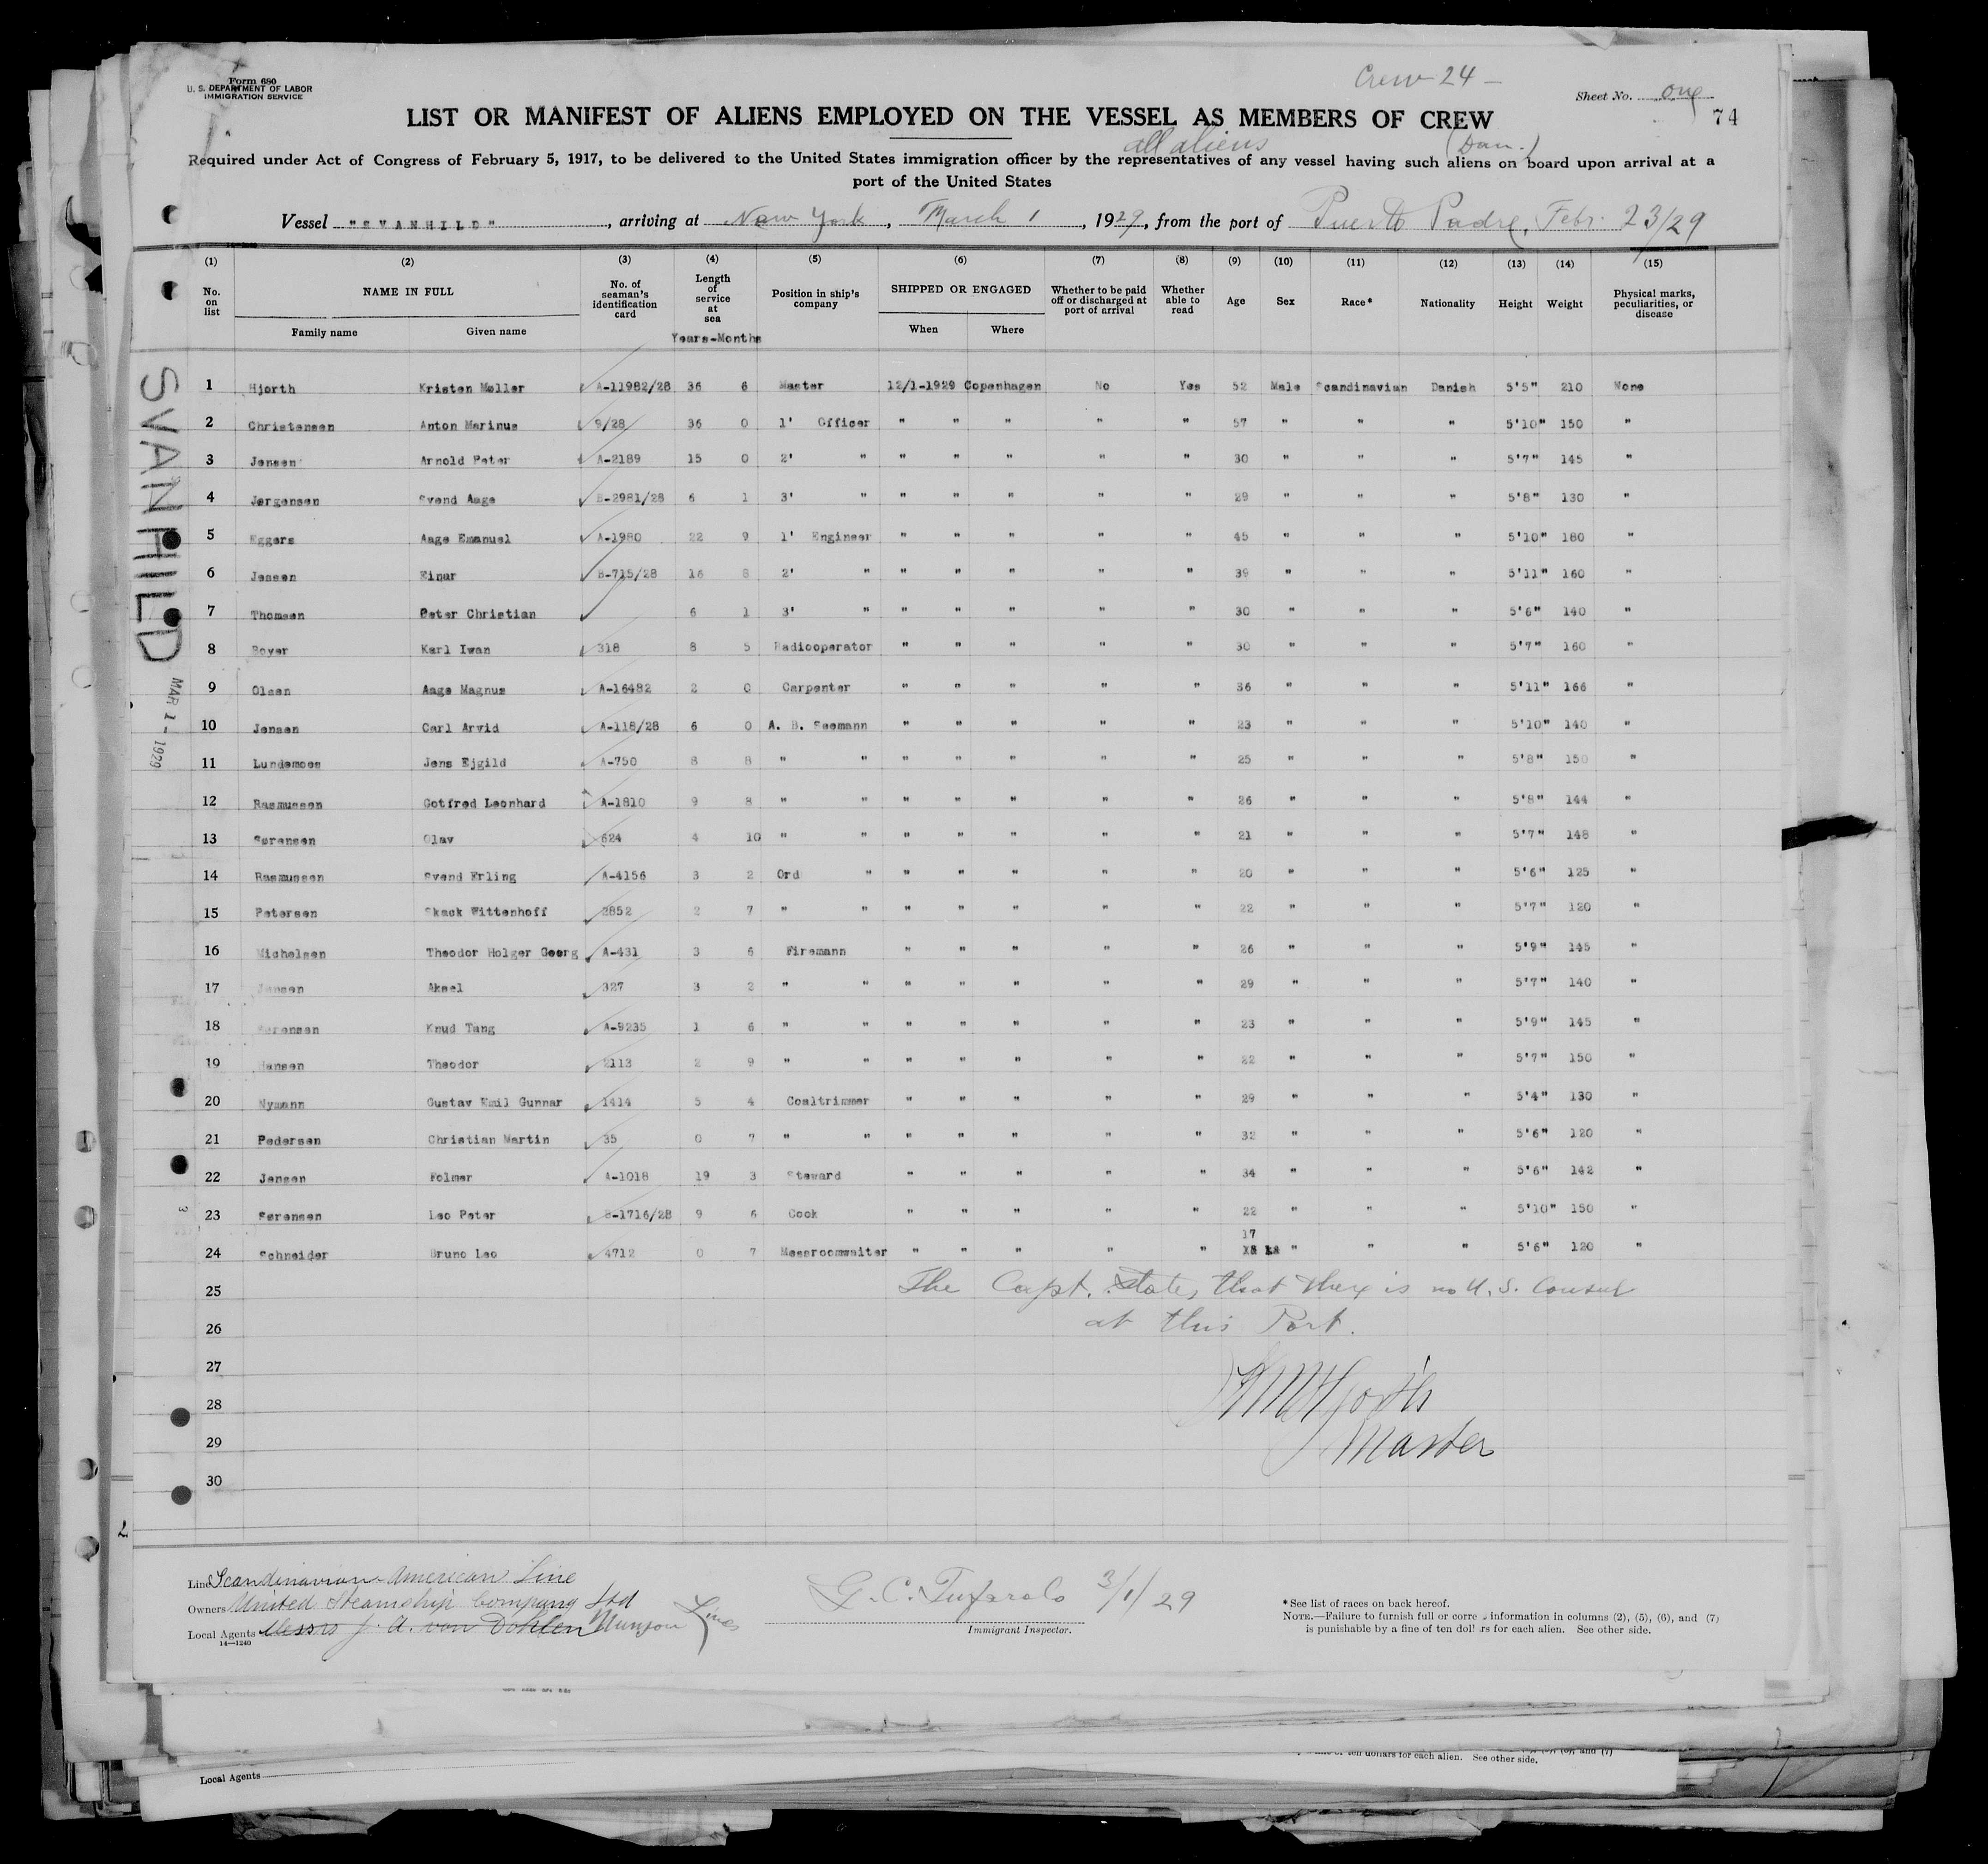 Form 680
U. S. DEPARTMENT OF LABOR
IMMIGRATION SERVICE
Crew 24 –
Sheet No. one
74
LIST OR MANIFEST OF ALIENS EMPLOYED ON THE VESSEL AS MEMBERS OF CREW
all aliens (Dan.)
Required under Act of Congress of February 5, 1917, to be delivered to the United States immigration officer by the representatives of any vessel having such aliens on board upon arrival at a
port of the United States
Vessel "SVANHILD", arriving at New York, March 1, 1929, from the port of Puerto Padre, Febr. 23/29
(1) (2) (3) (4) (5) (6) (7) (8) (9) (10) (11) (12) (13) (14) (15)
No. on list NAME IN FULL Family name Given name No. of seaman's identification card Length of service at sea Years-Months Position in ship's company SHIPPED OR ENGAGED When Where Whether to be paid off or discharged at port of arrival Whether able to read Age Sex Race* Nationality Height Weight Physical marks, peculiarities, or disease
1 Hjorth Kristen Møller A-11982/28 36 6 Master 12/1-1929 Copenhagen No Yes 52 Male Scandinavian Danish 5'5" 210 None
2 Christensen Anton Marinus 9/28 36 0 1' Officer " " " " " 57 " " " 5'10" 150 "
3 Jensen Arnold Peter A-2189 15 0 2' " " " " " " 30 " " " 5'7" 145 "
4 Jørgensen Svend Aage B-2981/28 6 1 3' " " " " " " 29 " " " 5'8" 130 "
5 Eggers Aage Emanuel A-1980 22 9 1' Engineer " " " " " 45 " " " 5'10" 180 "
6 Jensen Einar B-715/28 16 8 2' " " " " " " 39 " " " 5'11" 160 "
7 Thomsen Peter Christian 6 1 3' " " " " " " 30 " " " 5'6" 140 "
8 Boyer Karl Iwan 318 8 5 Radiooperator " " " " " 30 " " " 5'7" 160 "
9 Olsen Aage Magnus A-16482 2 0 Carpenter " " " " " 36 " " " 5'11" 166 "
10 Jensen Carl Arvid A-118/28 6 0 A. B. Seemann " " " " " 23 " " " 5'10" 140 "
11 Lundemoes Jens Ejgild A-750 8 8 " " " " " " " 25 " " " 5'8" 150 "
12 Rasmussen Gotfred Leonhard A-1810 9 8 " " " " " " " 26 " " " 5'8" 144 "
13 Sørensen Olav 624 4 10 " " " " " " " 21 " " " 5'7" 148 "
14 Rasmussen Svend Erling A-4156 3 2 Ord " " " " " " 20 " " " 5'6" 125 "
15 Petersen Skack Wittenhoff 2852 2 7 " " " " " " " 22 " " " 5'7" 120 "
16 Michelsen Theodor Holger Georg A-431 3 6 Firemann " " " " " 26 " " " 5'9" 145 "
17 Jensen Aksel 327 3 2 " " " " " " " 29 " " " 5'7" 140 "
18 Sørensen Knud Tang A-9235 1 6 " " " " " " " 23 " " " 5'9" 145 "
19 Hansen Theodor 2113 2 9 " " " " " " " 22 " " " 5'7" 150 "
20 Nymann Gustav Emil Gunnar 1414 5 4 Coaltrimmer " " " " " 29 " " " 5'4" 130 "
21 Pedersen Christian Martin 35 0 7 " " " " " " " 32 " " " 5'6" 120 "
22 Jensen Folmer A-1018 19 3 Steward " " " " " 34 " " " 5'6" 142 "
23 Sørensen Leo Peter B-1716/28 9 6 Cook " " " " " 22 " " " 5'10" 150 "
24 Schneider Bruno Leo 4712 0 7 Messroomwaiter " " " " " 17 " " " 5'6" 120 "
25 The Capt. states that there is no U.S. Consul
26 at this Port.
27
28 KMHjorth
29 Master
30
SVANHILD
MAR 1 - 1929
Line Scandinavian-American Line
Owners United Steamship Company Ltd
Local Agents Messrs J. A. von Dohlen Munson Lines
14—1240
G. C. Tufarolo 3/1/29
Immigrant Inspector.
*See list of races on back hereof.
NOTE.—Failure to furnish full or corre information in columns (2), (5), (6), and (7)
is punishable by a fine of ten dollars for each alien. See other side.
ten dollars for each alien. See other side.
Local Agents